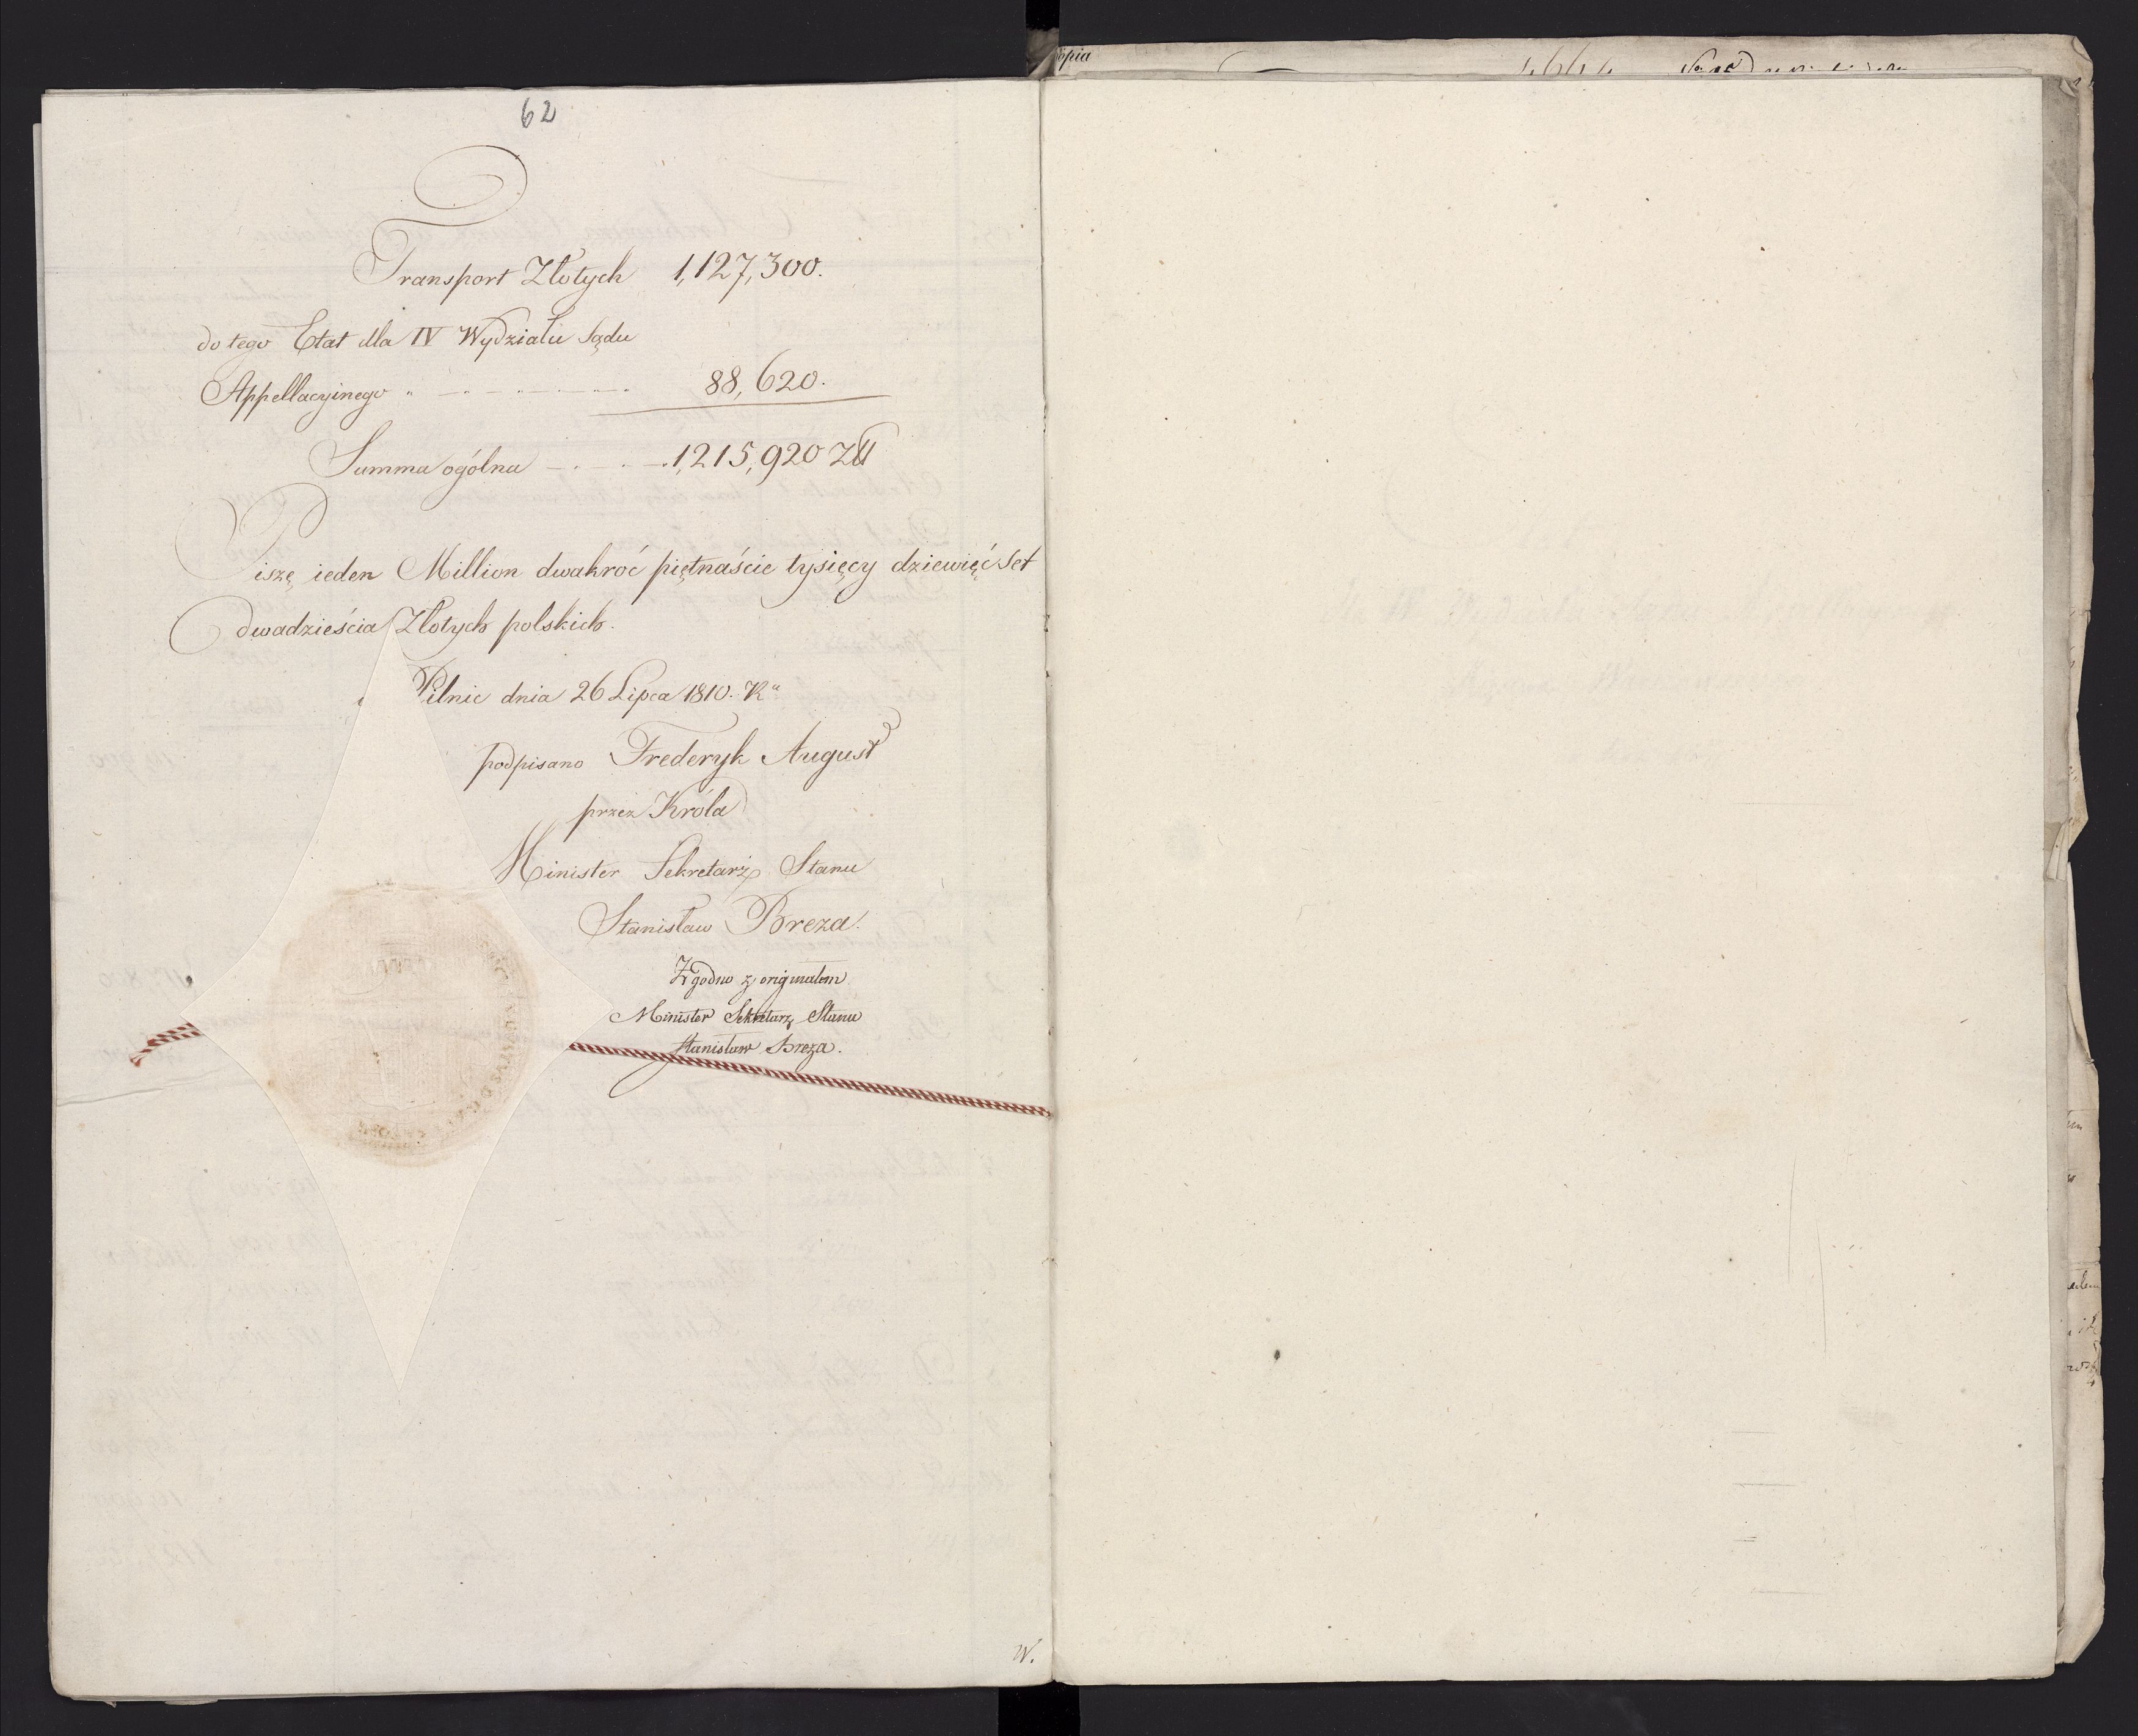 62
Transport Złotych 1,127,300.
do tego Etat dla IV Wydziału Sądu
Appellacyinego 88,620.
Summa ogólna 1,215,920 Złł
Piszę ieden Million dwakroć piętnaście tysięcy dziewięć Set
dwadzieścia Złotych polskich.
Pilnic dnia 26 Lipca 1810. Ru
podpisano Frederyk August
przez Króla
Minister Sekretarz Stanu
Stanisław Breza.
Zgodno z originałem
Minister Sekretarz Stanu
Stanisław Breza.
W.